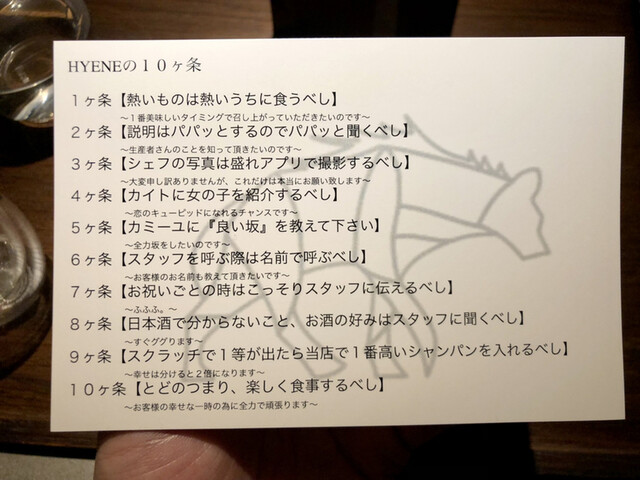 HYENEの１０ヶ条
１ヶ条【熱いものは熱いうちに食うべし】
～１番美味しいタイミングで召し上がっていただきたいのです～
２ヶ条【説明はパパッとするのでパパッと聞くべし】
～生産者さんのことを知って頂きたいのです～
３ヶ条【シェフの写真は盛れアプリで撮影するべし】
～大変申し訳ありませんが、これだけは本当にお願い致します～
４ヶ条【カイトに女の子を紹介するべし】
～恋のキューピッドになれるチャンスです～
５ヶ条【カミーユに『良い坂』を教えて下さい】
～全力坂をしたいのです～
６ヶ条【スタッフを呼ぶ際は名前で呼ぶべし】
～お客様のお名前も教えて頂きたいです～
７ヶ条【お祝いごとの時はこっそりスタッフに伝えるべし】
～ふふふ。～
８ヶ条【日本酒で分からないこと、お酒の好みはスタッフに聞くべし】
～すぐググります～
９ヶ条【スクラッチで１等が出たら当店で１番高いシャンパンを入れるべし】
～幸せは分けると２倍になります～
１０ヶ条【とどのつまり、楽しく食事するべし】
～お客様の幸せな一時の為に全力で頑張ります～